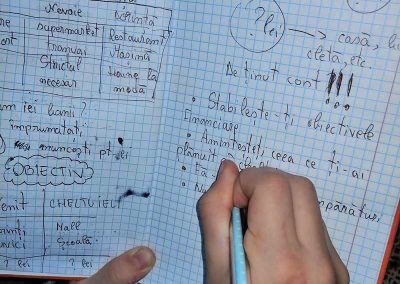 Nevoie
Dorință
supermarket
Restaurant
tramvai
Mașină
Strictul
necesar
Haine la
modă
iei banii?
împrumutați
muncești pt ei
OBIECTIV
CHELTUIELI
Mall
Școală
? lei
? lei
? lei → casă,
etc.
De ținut cont !!!
• Stabilește-ți obiectivele
financiare
• Amintește-ți ceea ce ți-ai
plănuit
•
•